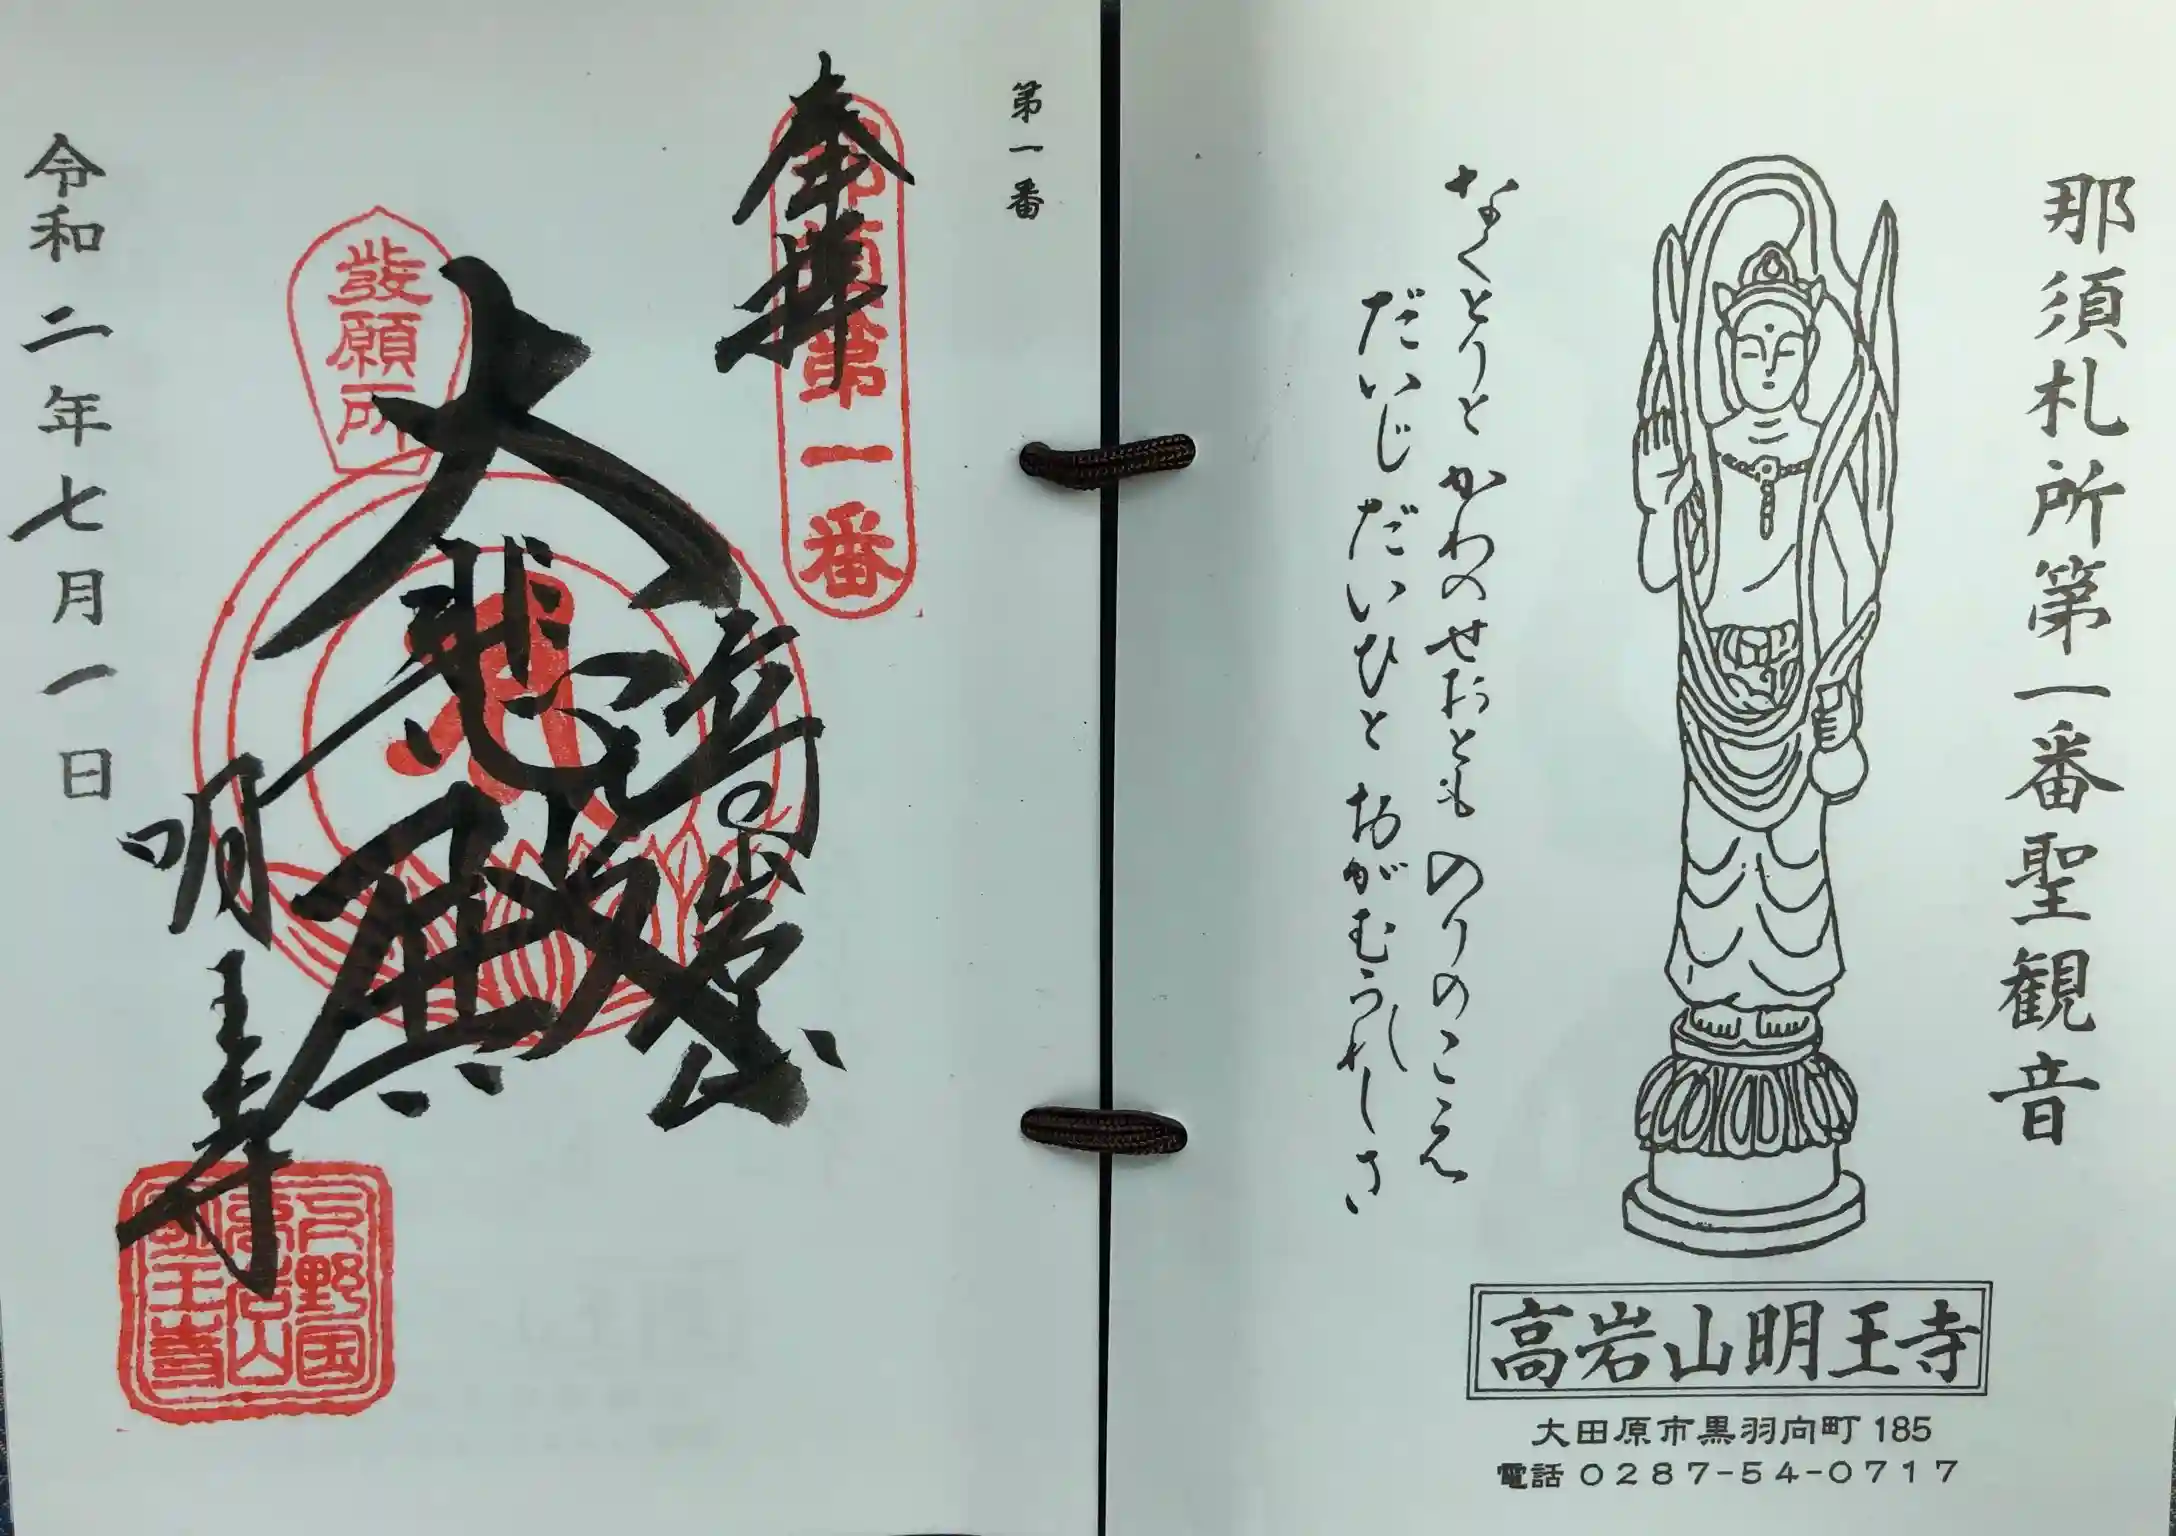 那須札所第一番聖観音
なくとりと かわのせおとも のりのこえ
だいじ だいひと おがむうれしさ
高岩山明王寺
大田原市黒羽向町185
電話 0287-54-0717
第一番
奉拝
那須第一番
發願所
大悲殿
高岩山
明王寺
下野国
高岩山
明王寺
令和二年七月一日